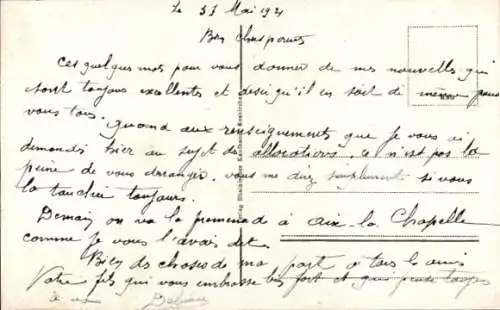 Le 31 Mai 1921
Bien chers parents
Ces quelques mots pour vous donner de mes nouvelles qui
sont toujours excellentes et désire qu'il en soit de même pour
vous tous.
Quand aux renseignements que je vous ai
demandé hier au sujet des allocations, ce n'est pas la
peine de vous déranger, vous me direz simplement si vous
la touchez toujours.
Demain on va la promenade à Aix-la Chapelle
comme je vous l'avais dit.
Bien des choses de ma part à tous les amis
Votre fils qui vous embrasse bien fort et qui pense toujours
à vous